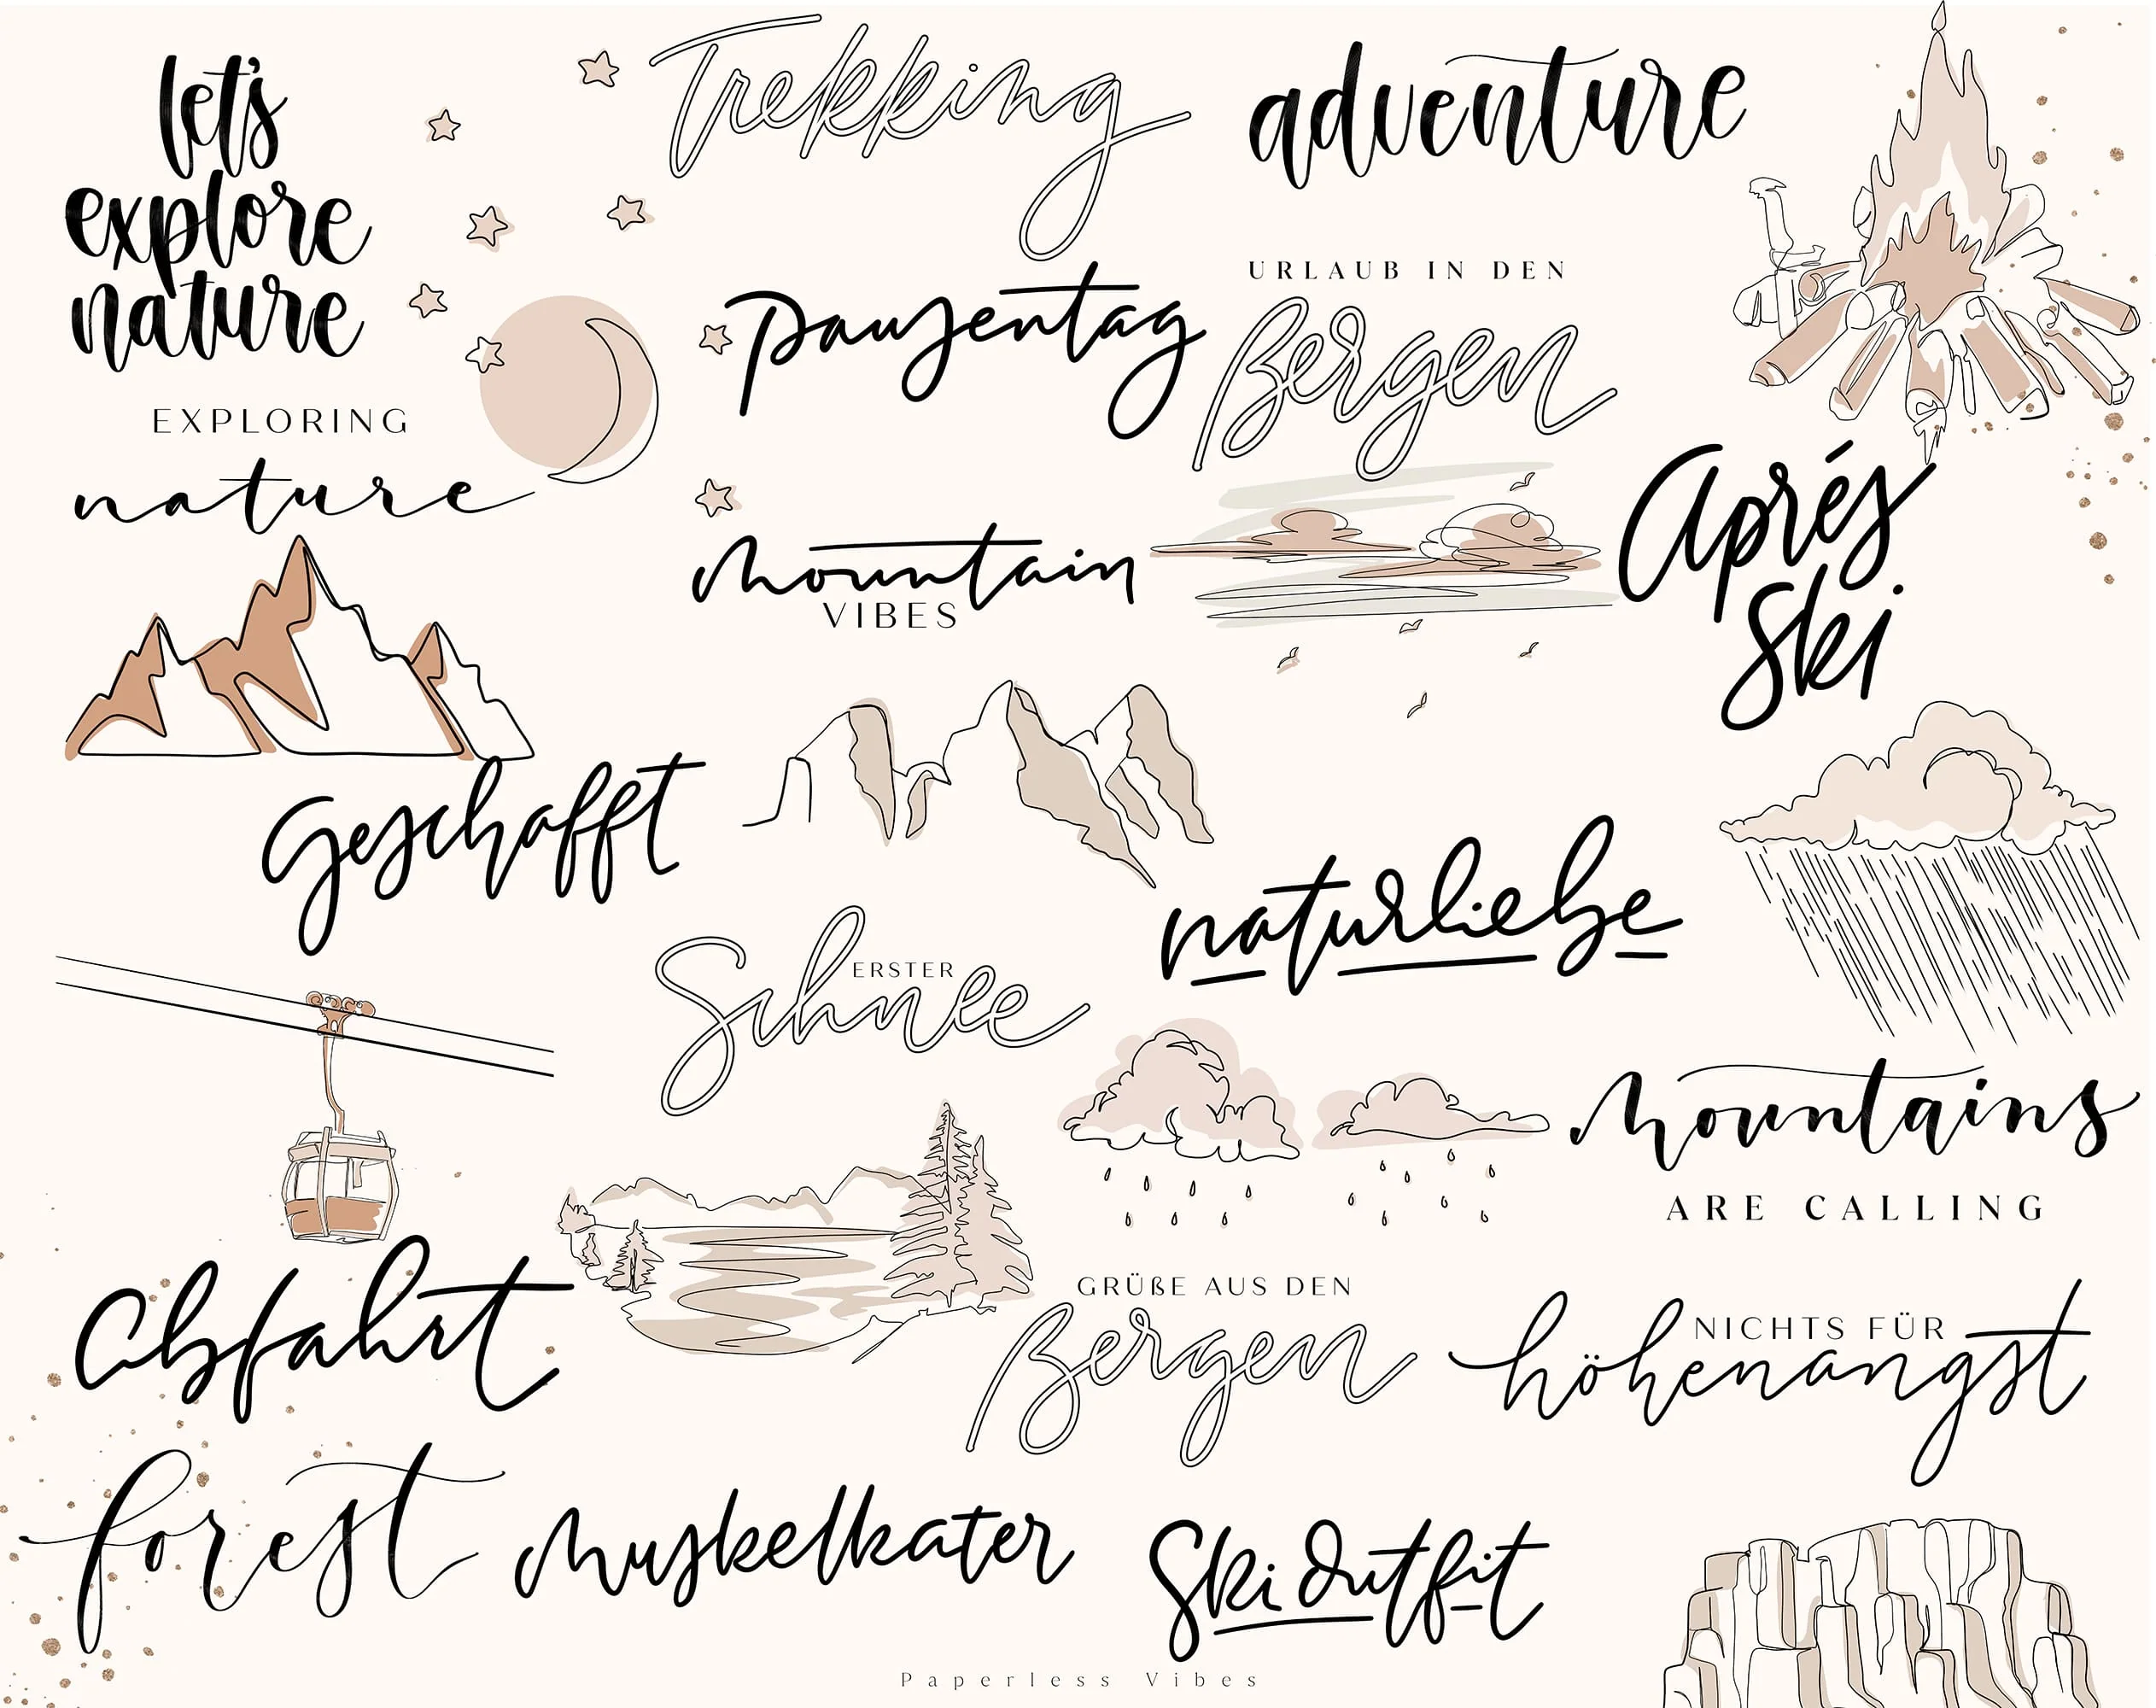 let's
explore
nature
Trekking
adventure
EXPLORING
nature
pausentag
URLAUB IN DEN
Bergen
mountain
VIBES
Aprés
Ski
geschafft
naturliebe
ERSTER
Schnee
mountains
ARE CALLING
Abfahrt
GRÜßE AUS DEN
Bergen
NICHTS FÜR
höhenangst
forest
Muskelkater
Ski Outfit
Paperless Vibes